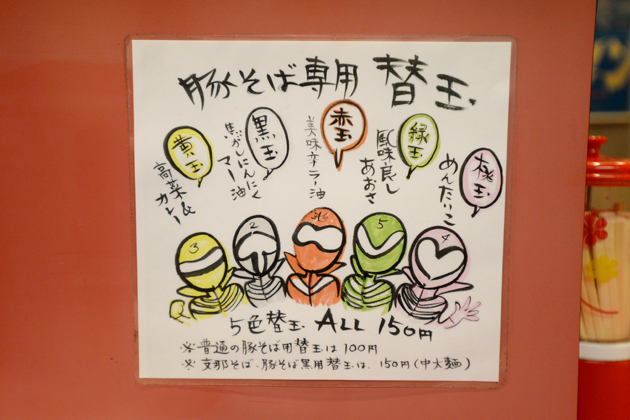 豚そば専用 替玉
黄玉
高菜&カレー
黒玉
焦がしにんにくマー油
赤玉
美味辛ラー油
緑玉
風味良しあおさ
桃玉
めんたいこ
3
2
1
5
4
5色替玉 ALL 150円
※普通の豚そば用替玉は100円
※支那そば、豚そば黒用替玉は、150円(中太麺)